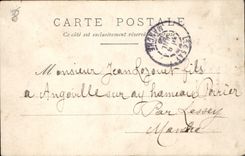 CARTE POSTALE
Ce côté est exclusivement réservé
Monsieur Jean fils
à Angoville sur ay hameau Poirier
Par Lessay
Manche